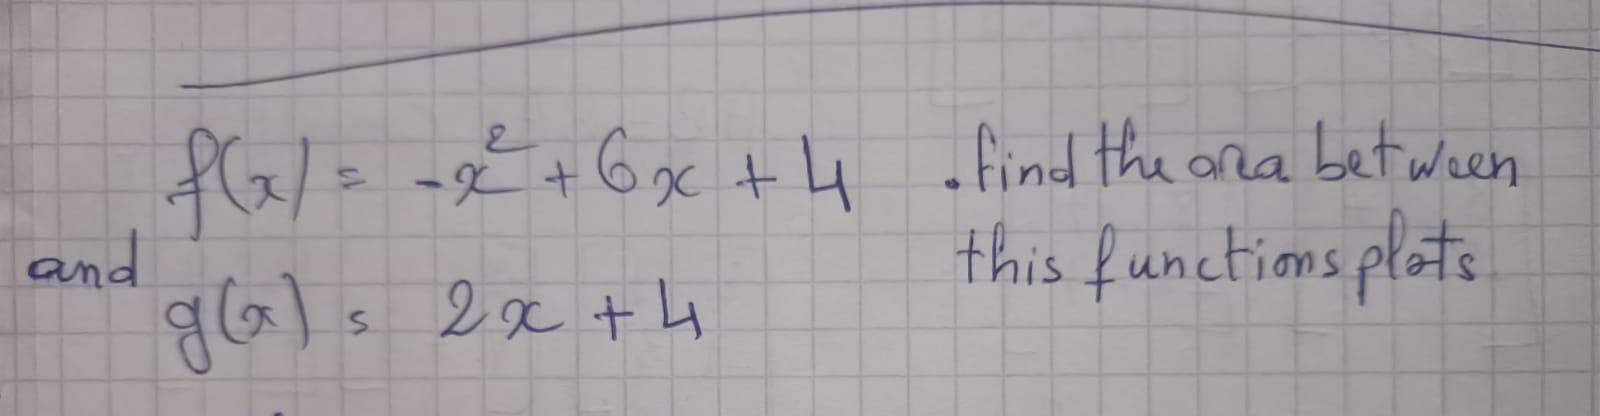 f(x) = -x² + 6x + 4 . find the area between
this functions plots
and
g(x) = 2x + 4